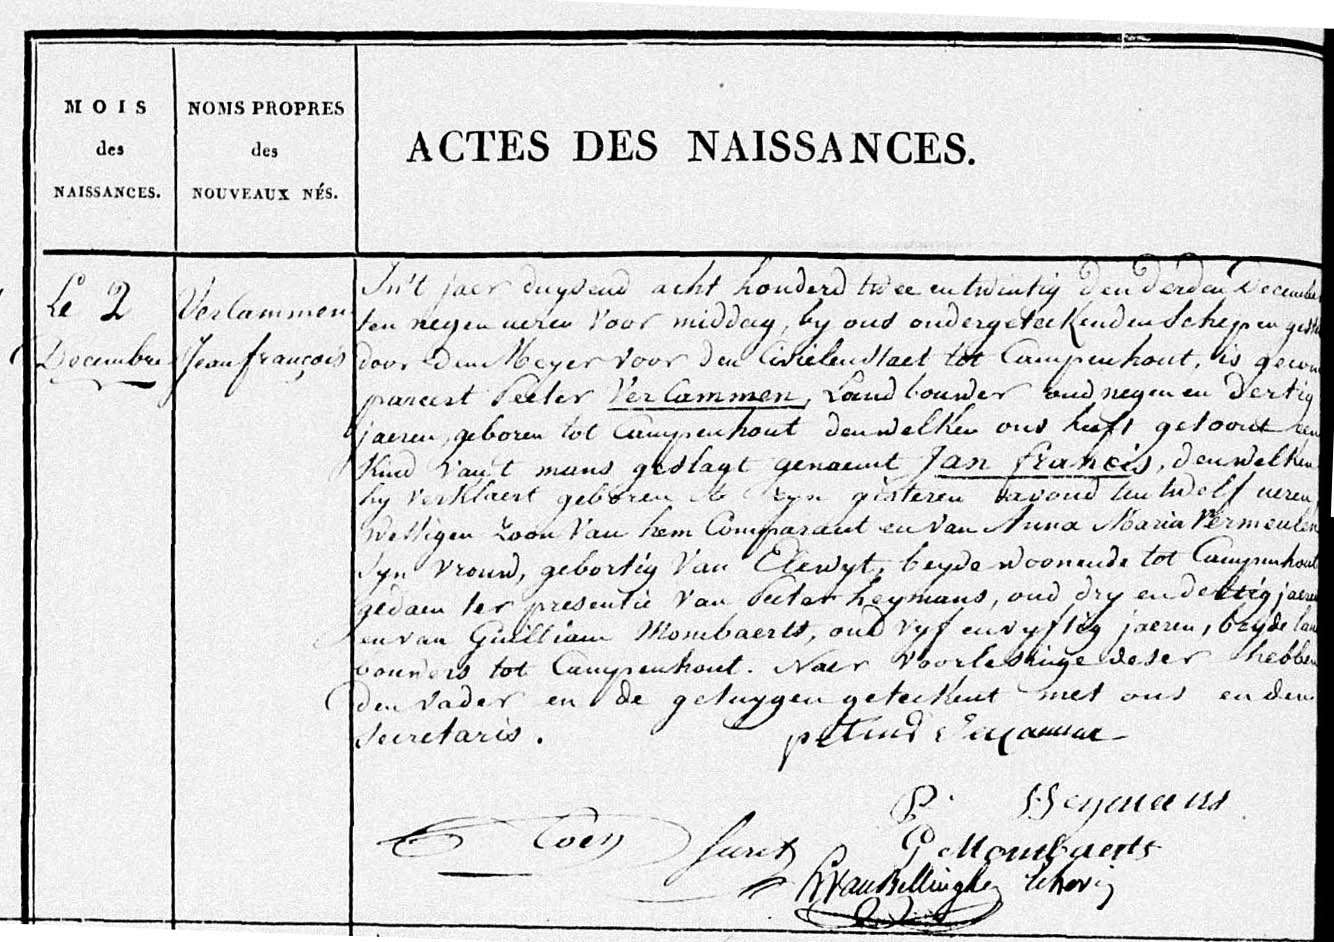 MOIS
des
NAISSANCES.
NOMS PROPRES
des
NOUVEAUX NÉS.
ACTES DES NAISSANCES.
Le 2
Decembre
Verlammen
Jean françois
In't jaer duysend acht honderd twee en twintig den derden December
ten negen ueren voor middag, by ons ondergeteekenden Schepen
door den Meyer voor den Civielenstaet tot Campenhout, is gecom
pareert Peeter Vercammen, Landbouwer oud negen en dertig
jaeren, geboren tot Campenhout denwelken ons heeft getoont een
kind van't mans geslagt genaemt Jan Francis, denwelken
hy verklaert geboren te zyn gisteren avond ten twelf ueren,
Wettigen zoon van hem Comparant en van Anna Maria Vermeulen
syn vrouw, gebortig van Elewyt, beyde woonende tot Campenhout
gedaen ter presentie van Peeter Heymans, oud dry en dertig jaeren
en van Guilliam Mombaerts, oud vyf en vyftig jaeren, beyde lan
bouwers tot Campenhout. Naer voorlesinge deser hebben
den vader en de getuygen geteekent met ons en den
Secretaris.
P. Heymans
Coen Secret
G Mombaerts
VanBellinghen Schepen